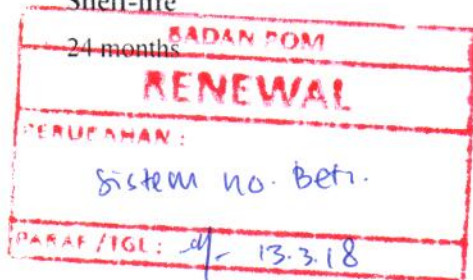 Shelf-life
24 months
BADAN POM
RENEWAL
PERUBAHAN :
Sistem no. Bets.
PARAF / TGL : 13.3.18